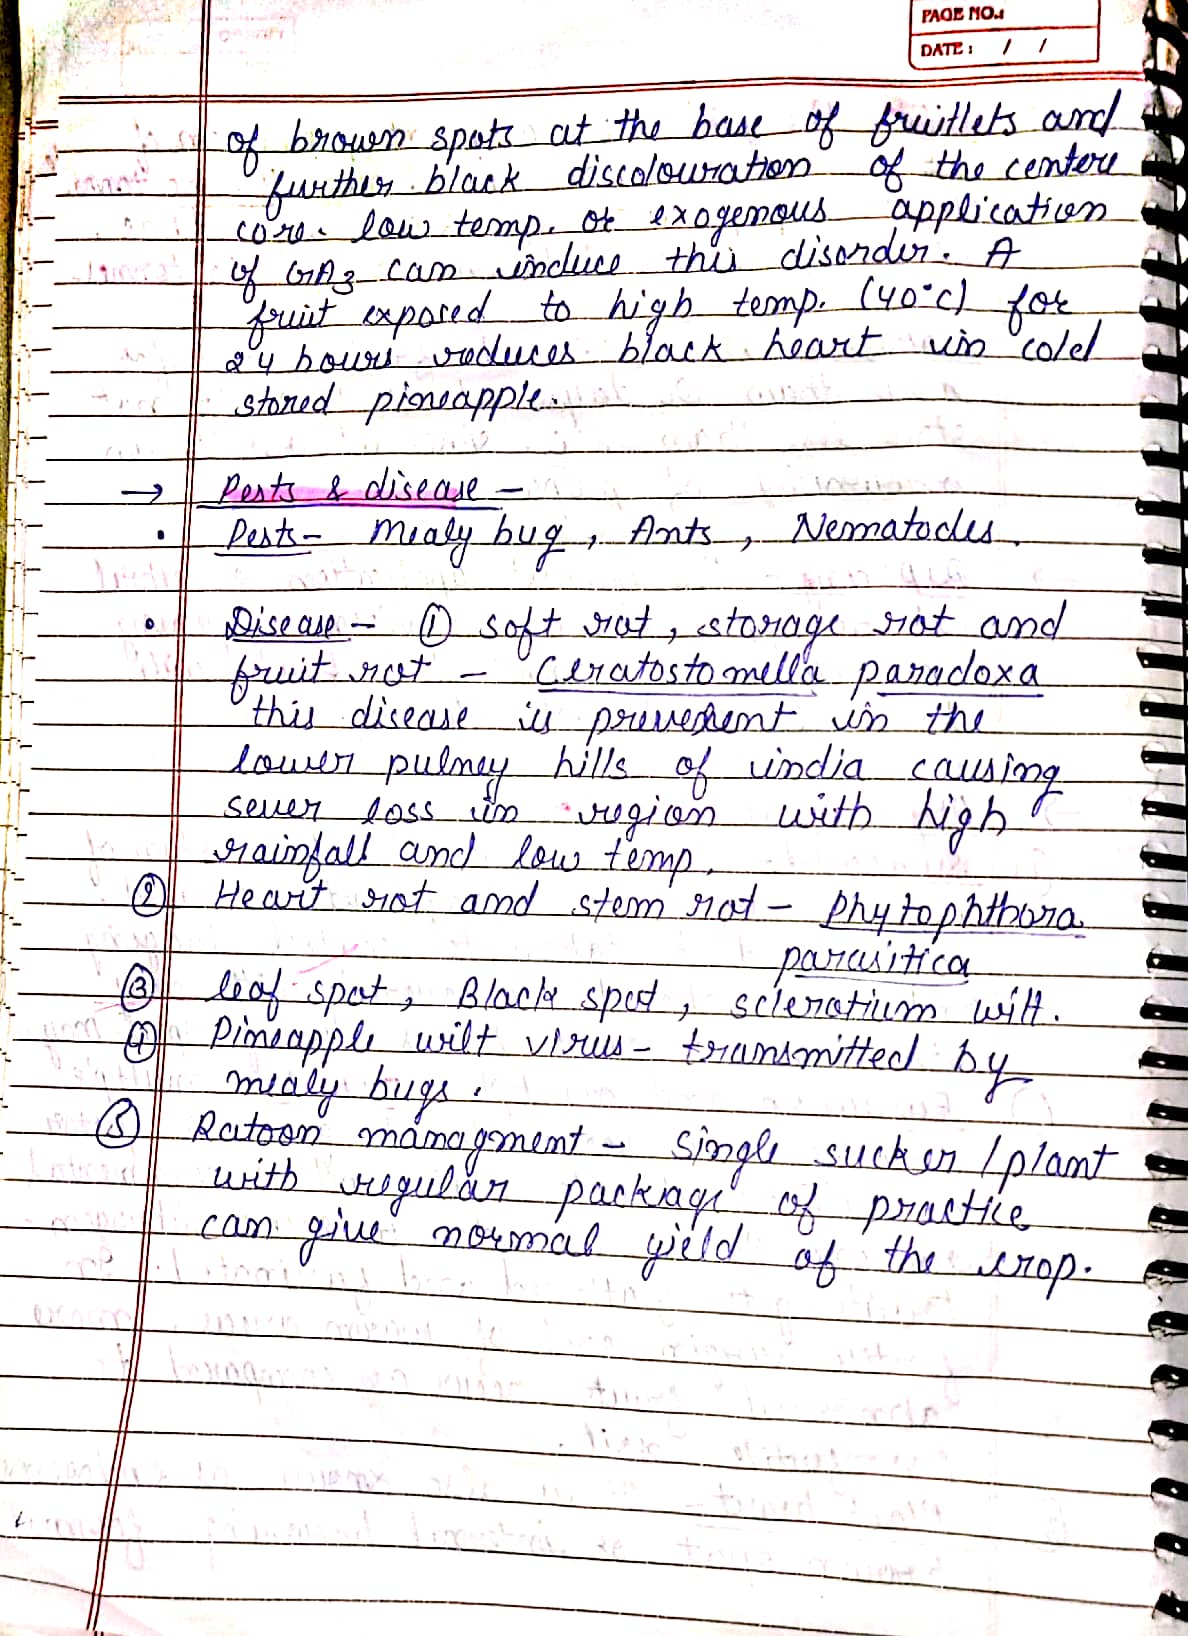 PAGE NO.:
DATE: / /
of brown spots at the base of fruitlets and
further black discolouration of the centere
core. low temp. or exogenous application
of GA3 can induce this disorder. A
fruit exposed to high temp. (40°c) for
24 hours reduces black heart in cold
stored pineapple.
→ Pests & disease –
• Pests – Mealy bug, Ants, Nematodes.
• Disease – ① soft rot, storage rot and
fruit rot – Ceratostomella paradoxa
this disease is in the
lower pulney hills of india causing
sever loss in region with high
rainfall and low temp.
② Heart rot and stem rot – Phytophthora
parasitica
③ leaf spot, Black spot, sclerotium wilt.
④ Pineapple wilt virus – transmitted by
mealy bugs.
⑤ Ratoon managment – single sucker/plant
with regular package of practice
can give normal yield of the crop.